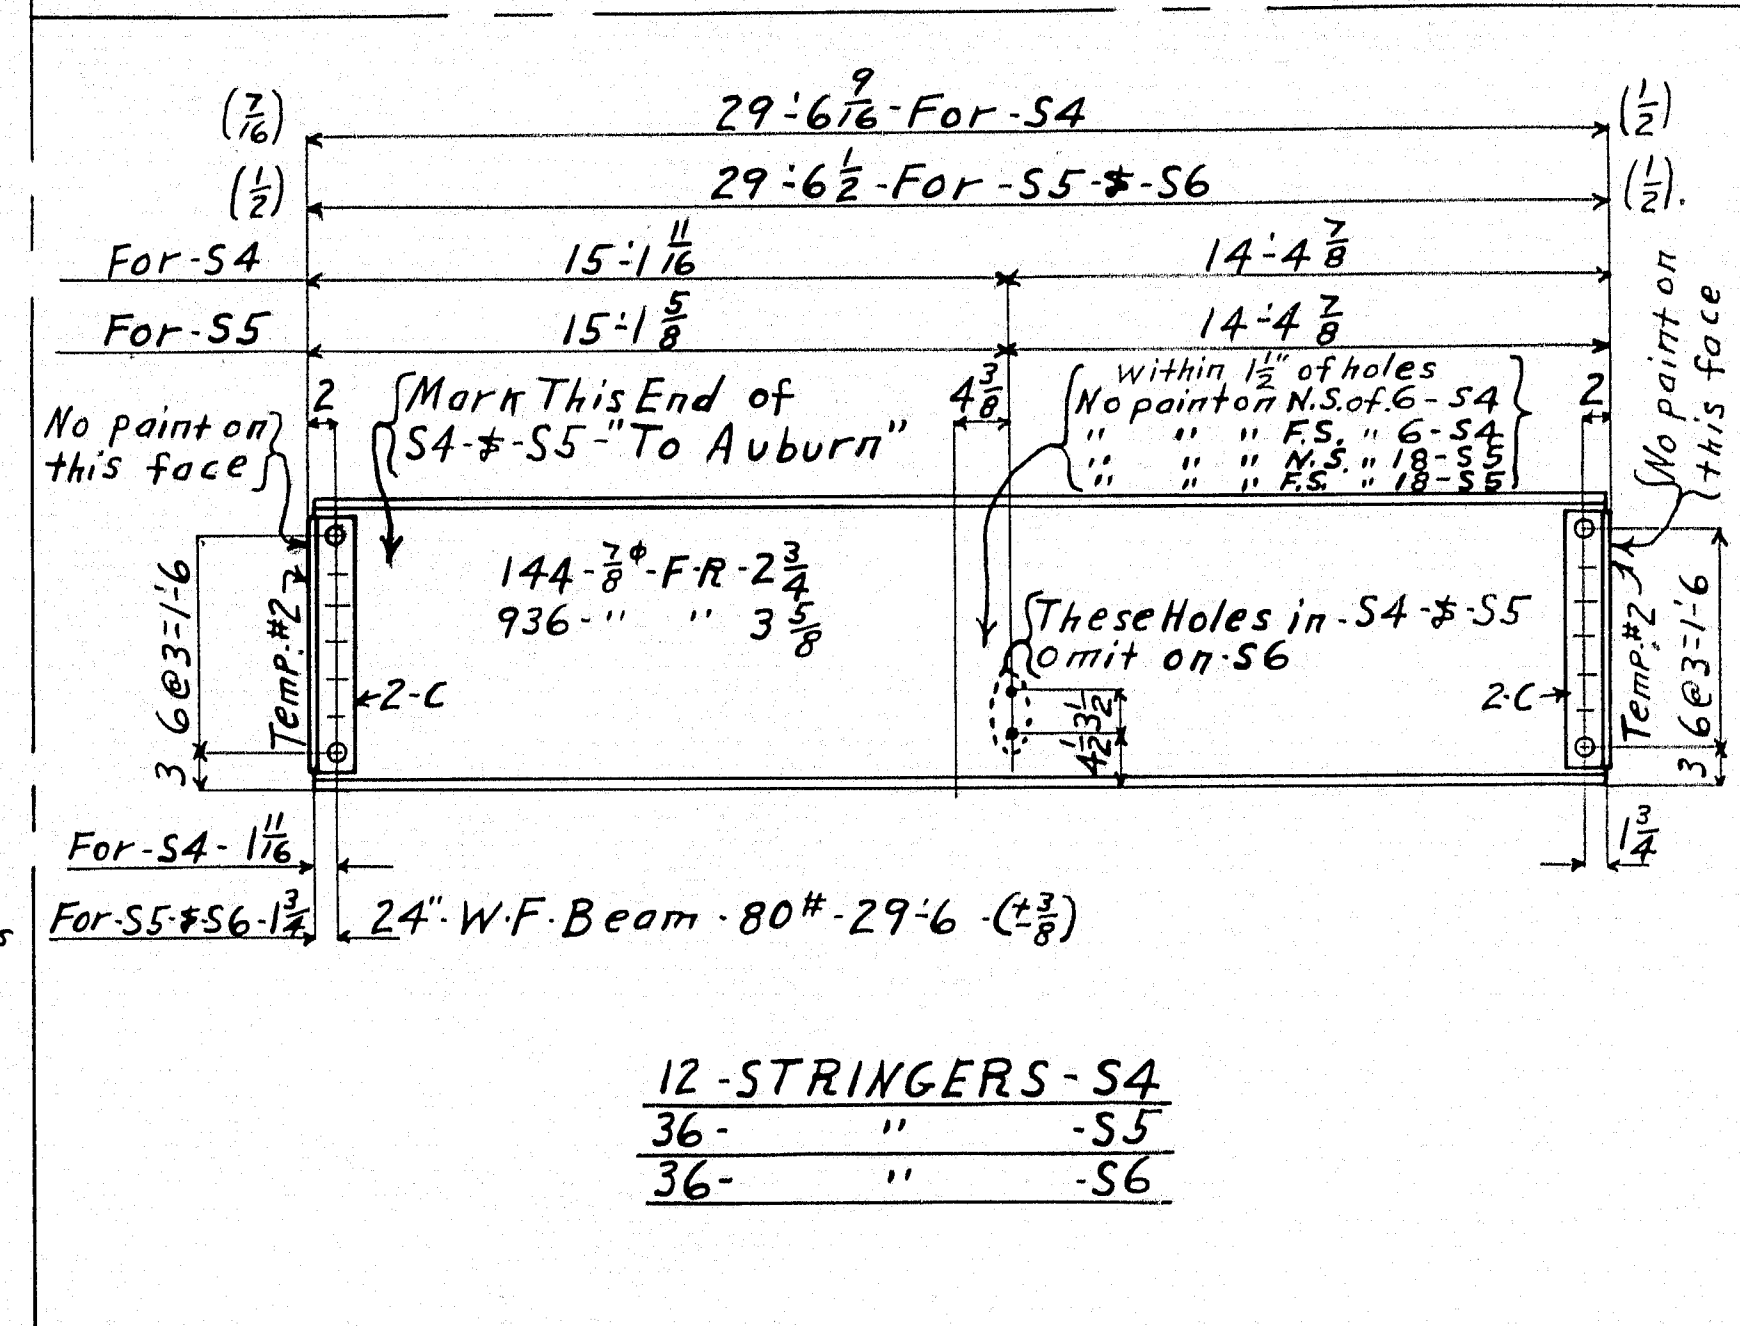 (7/16) 29'-6 9/16 - For - S4 (1/2)
(1/2) 29'-6 1/2 - For - S5 - & - S6 (1/2).
For - S4 15'-1 11/16 14'-4 7/8
For - S5 15'-1 5/8 14'-4 7/8
2
Mark This End of
S4 - & - S5 - "To Auburn"
4 3/8
within 1 1/2" of holes
No paint on N.S. of. 6 - S4
" " " F.S. " 6 - S4
" " " N.S. " 18 - S5
" " " F.S. " 18 - S5
2
No paint on
this face
No paint on
this face
144 - 7/8 ϕ - F·R - 2 3/4
936 - " " 3 5/8
These Holes in - S4 - & - S5
omit on · S6
3 6@3=1'-6
Temp. #2
2-C
4 1/2 3 1/2
2·C
Temp. #2
3 6@3=1'-6
For - S4 - 1 11/16
1 3/4
For - S5 - & - S6 - 1 3/4
24" · W·F· Beam · 80# - 29'-6 - (± 3/8)
s
12 - STRINGERS - S4
36 - " - S5
36 - " - S6